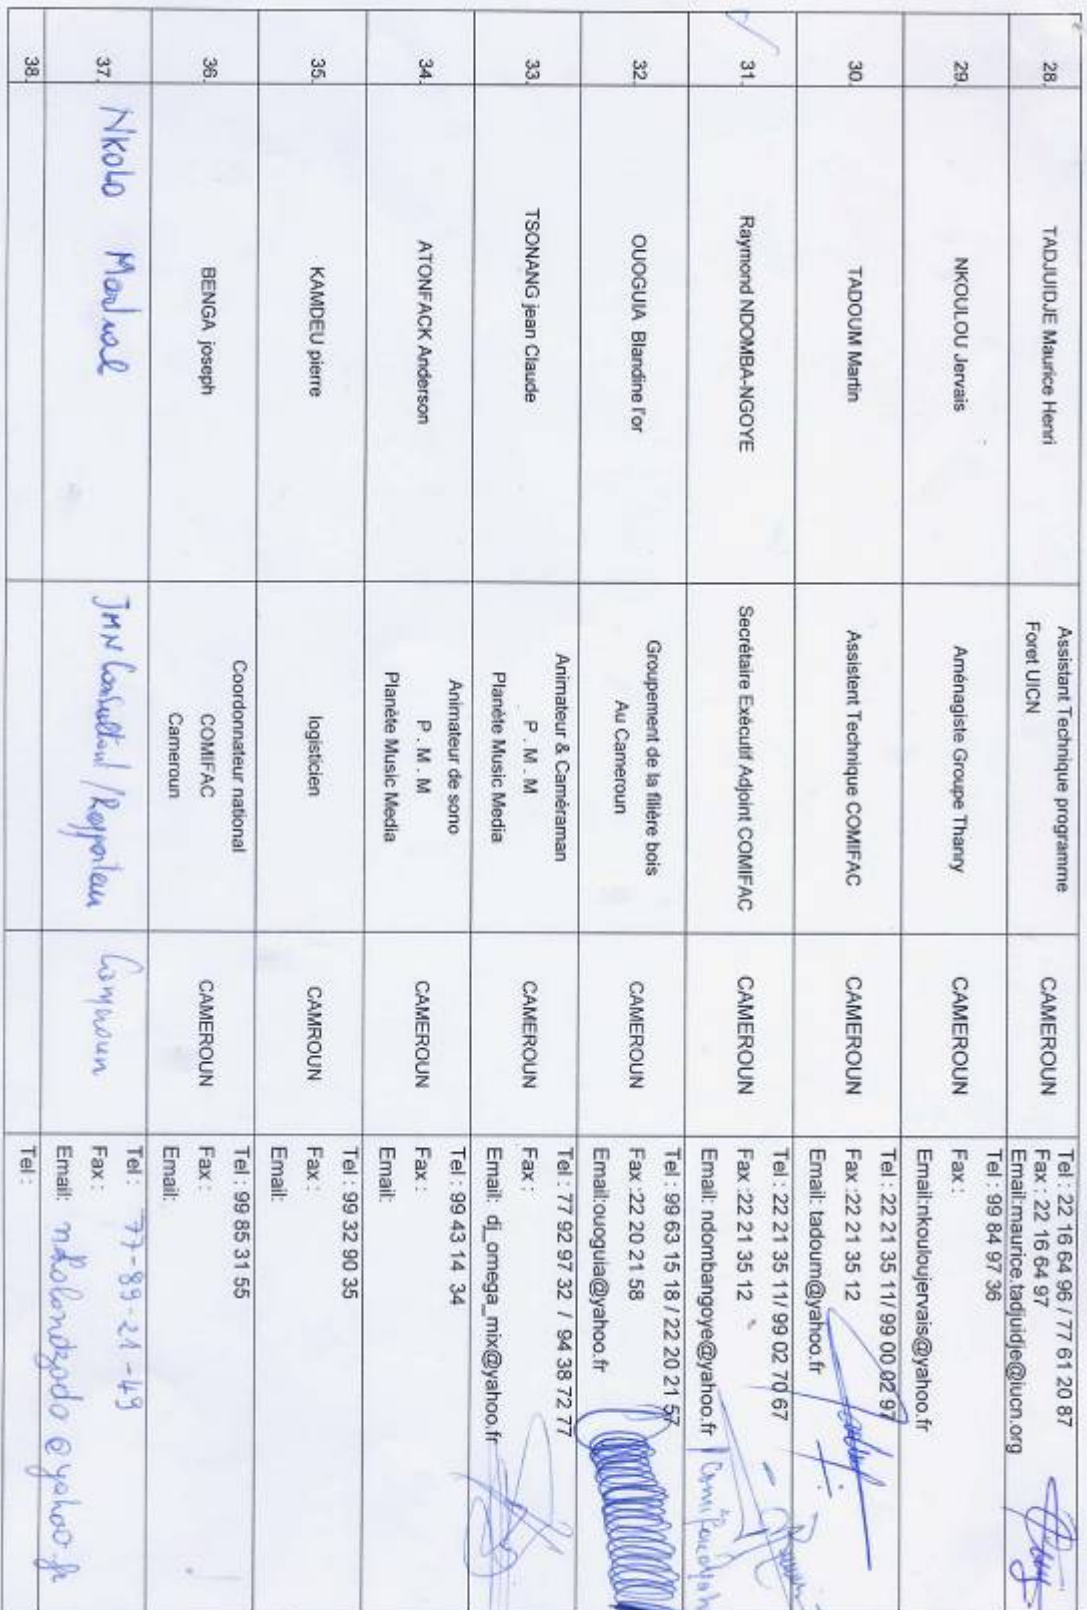 28.
TADJUIDJE Maurice Henri
Assistant Technique programme
Foret UICN
CAMEROUN
Tel : 22 16 64 96 / 77 61 20 87
Fax : 22 16 64 97
Email:maurice.tadjuidje@iucn.org
29.
NKOULOU Jervais
Aménagiste Groupe Thanry
CAMEROUN
Tel : 99 84 97 36
Fax :
Email:nkouloujervais@yahoo.fr
30.
TADOUM Martin
Assistent Technique COMIFAC
CAMEROUN
Tel : 22 21 35 11/ 99 00 02 97
Fax :22 21 35 12
Email: tadoum@yahoo.fr
31.
Raymond NDOMBA-NGOYE
Secrétaire Exécutif Adjoint COMIFAC
CAMEROUN
Tel : 22 21 35 11/ 99 02 70 67
Fax :22 21 35 12
Email: ndombangoye@yahoo.fr
32.
OUOGUIA Blandine l'or
Groupement de la filière bois
Au Cameroun
CAMEROUN
Tel : 99 63 15 18 / 22 20 21 57
Fax :22 20 21 58
Email:ouoguia@yahoo.fr
33.
TSONANG jean Claude
Animateur & Caméraman
P . M . M
Planète Music Media
CAMEROUN
Tel : 77 92 97 32 / 94 38 72 77
Fax :
Email: dj_omega_mix@yahoo.fr
34.
ATONFACK Anderson
Animateur de sono
P . M . M
Planète Music Media
CAMEROUN
Tel : 99 43 14 34
Fax :
Email:
35.
KAMDEU pierre
logisticien
CAMROUN
Tel : 99 32 90 35
Fax :
Email:
36.
BENGA joseph
Coordonnateur national
COMIFAC
Cameroun
CAMEROUN
Tel : 99 85 31 55
Fax :
Email:
37.
Nkolo Martial
JMN Consultant / Rapporteur
Cameroun
Tel : 77-89-21-49
Fax :
Email: nkolondzodo@yahoo.fr
38.
Tel :